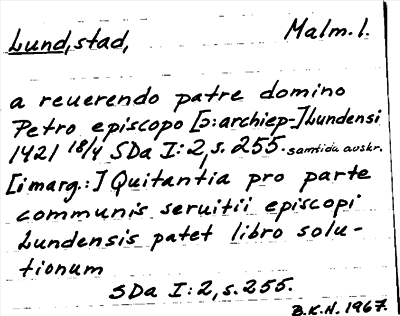 Lund, stad, Malm. l.
a reuerendo patre domino
Petro episcopo [ɔ: archiep-] Lundensi
1421 18/4 SDa I:2, s. 255. samtida avskr.
[i marg.:] Quitantia pro parte
communis seruitii episcopi
Lundensis patet libro solu-
tionum
SDa I:2, s. 255.
B.K.H. 1967.